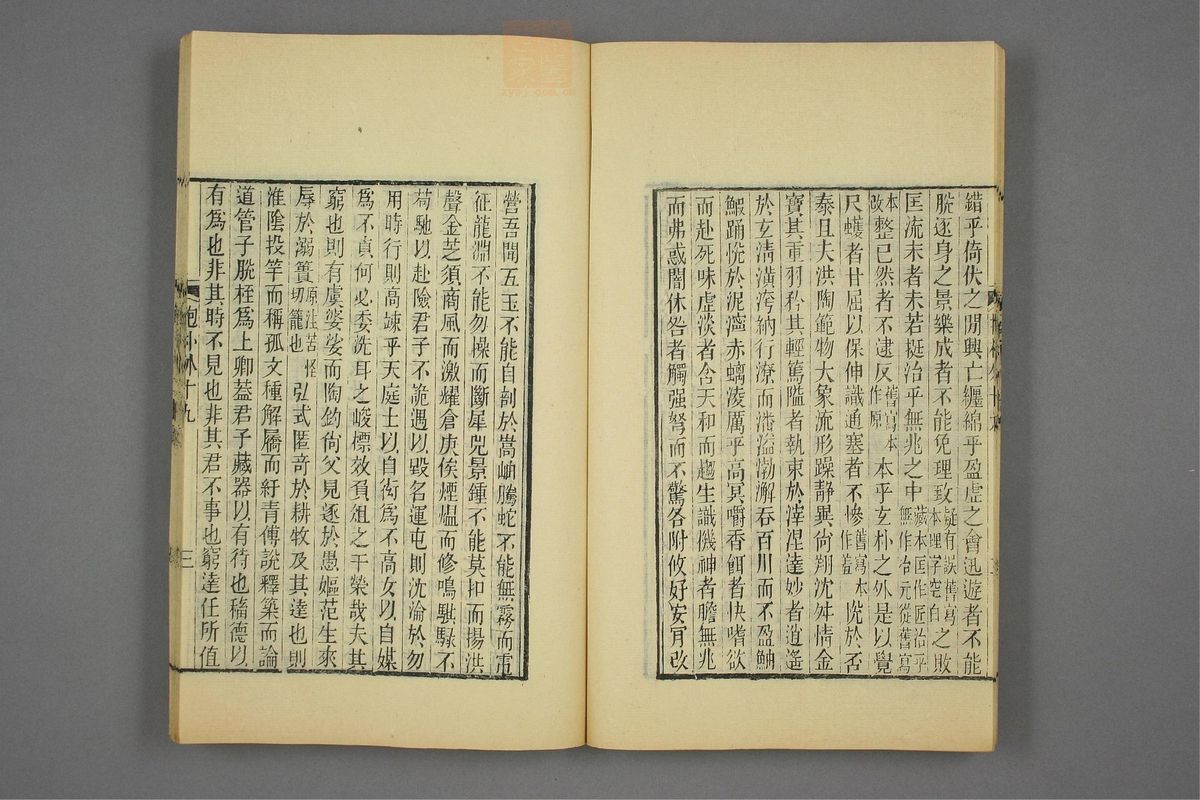 錯乎倚伏之閒興亡纏綿乎盈虛之會迅遊者不能
脫逐身之景樂成者不能免理致疑有誤舊寫本理字空白之敗
匡流末者未若挺治乎無兆之中藏本匡作匠治乎無作冶元從舊寫
本改整已然者不逮反舊寫本作原本乎玄朴之外是以覺
尺蠖者甘屈以保伸識通塞者不慘舊寫本作蓋悅於否
泰且夫洪陶範物大象流形躁靜異尙翔沈舛情金
寶其重羽矜其輕篤隘者執束於滓涅達妙者逍遙
於玄淸潢洿納行潦而潘溢渤澥吞百川而不盈鮋
鰕踊悅於泥濘赤螭淩厲乎高冥嚼香餌者快嗜欲
而赴死味虛淡者含天和而趨生識機神者瞻無兆
而弗惑闇休咎者觸强弩而不驚各附攸好安肎改
營吾聞五玉不能自剖於嵩岫騰蛇不能無霧而電
征龍淵不能勿操而斷犀兕景鍾不能莫扣而揚洪
聲金芝須商風而激耀倉庚俟煙熅而修鳴騏騄不
苟馳以赴險君子不詭遇以毀名運屯則沈淪於勿
用時行則高竦乎天庭士以自衒爲不高女以自媒
爲不貞何必委洗耳之峻標效負俎之干榮哉夫其
窮也則有虞婆娑而陶鈞尙父見逐於愚嫗范生來
辱於溺簀原注苦怪切籠也弘式匿奇於耕牧及其達也則
淮陰投竿而稱孤文種解屩而紆靑傅說釋築而論
道管子脫桎爲上卿蓋君子藏器以有待也稸德以
有爲也非其時不見也非其君不事也窮達任所值
抱朴外十九
三